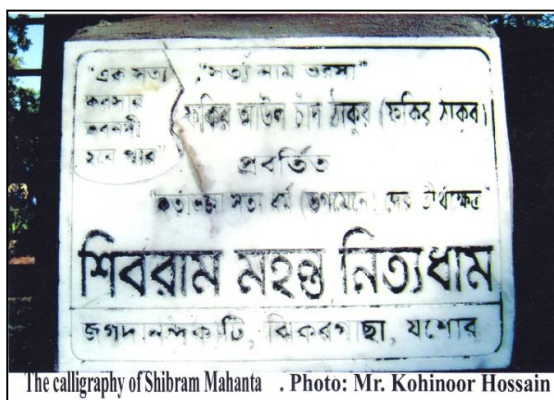 "এক সত্য
করসার
ভবনদী
হবে পার"
"সত্য নাম ভরসা"
ফকির আউল চাঁদ ঠাকুর (ফকির ঠাকুর)
প্রবর্তিত
"কর্তাভজা সত্য ধর্ম (ভগমেনে) দের তীর্থক্ষেত্র"
শিবরাম মহন্ত নিত্যধাম
জগদানন্দকাটি, ঝিকরগাছা, যশোর
The calligraphy of Shibram Mahanta . Photo: Mr. Kohinoor Hossain